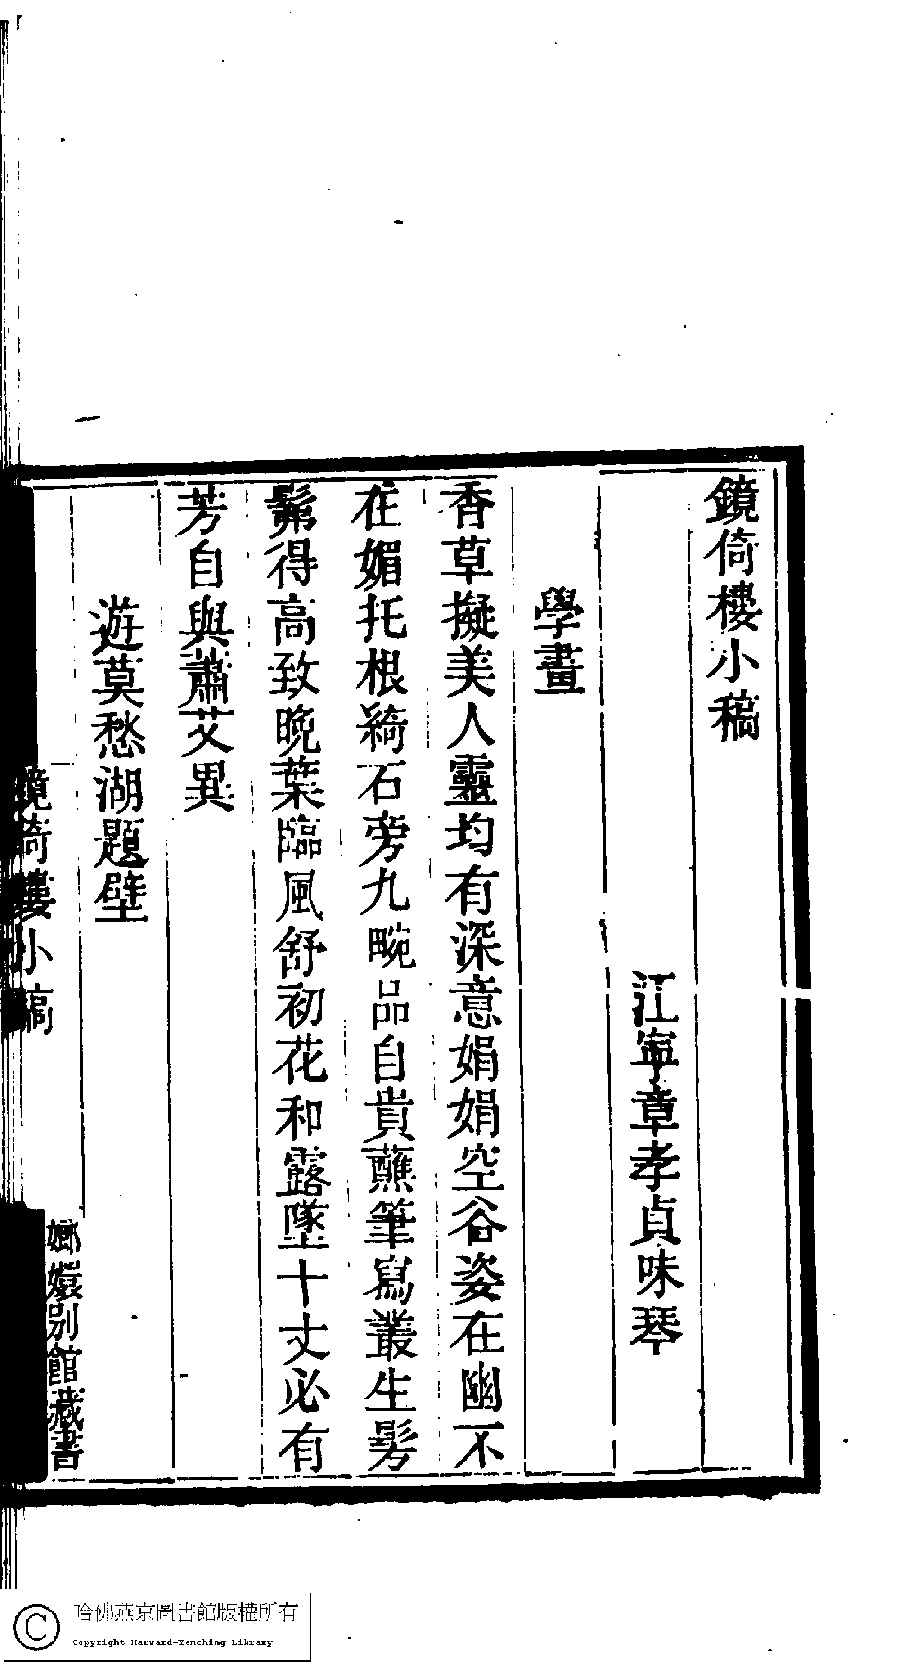 鏡倚樓小稿
江寧章孝貞味琴
學畫
香草擬美人靈均有深意娟娟空谷姿在幽不
在媚托根綺石旁九畹品自貴蘸筆寫叢生髣
髴得高致晚葉臨風舒初花和露墜十丈必有
芳自與蕭艾異
遊莫愁湖題壁
鏡倚樓小稿
嫏嬛別館藏書
哈佛燕京圖書館版權所有
Copyright Harvard-Yenching Library